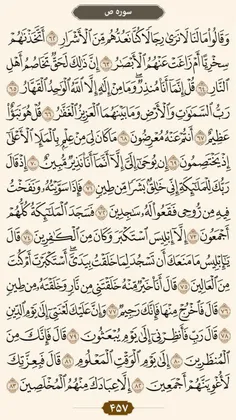 سوره ص
وَقَالُوا۟ مَا لَنَا لَا نَرَىٰ رِجَالًا كُنَّا نَعُدُّهُم مِّنَ ٱلْأَشْرَارِ ﴿٦٢﴾ أَتَّخَذْنَٰهُمْ
سِخْرِيًّا أَمْ زَاغَتْ عَنْهُمُ ٱلْأَبْصَٰرُ ﴿٦٣﴾ إِنَّ ذَٰلِكَ لَحَقٌّ تَخَاصُمُ أَهْلِ
ٱلنَّارِ ﴿٦٤﴾ قُلْ إِنَّمَآ أَنَا۠ مُنذِرٌ وَمَا مِنْ إِلَٰهٍ إِلَّا ٱللَّهُ ٱلْوَٰحِدُ ٱلْقَهَّارُ ﴿٦٥﴾
رَبُّ ٱلسَّمَٰوَٰتِ وَٱلْأَرْضِ وَمَا بَيْنَهُمَا ٱلْعَزِيزُ ٱلْغَفَّٰرُ ﴿٦٦﴾ قُلْ هُوَ نَبَؤٌا۟
عَظِيمٌ ﴿٦٧﴾ أَنتُمْ عَنْهُ مُعْرِضُونَ ﴿٦٨﴾ مَا كَانَ لِىَ مِنْ عِلْمٍۭ بِٱلْمَلَإِ ٱلْأَعْلَىٰٓ
إِذْ يَخْتَصِمُونَ ﴿٦٩﴾ إِن يُوحَىٰٓ إِلَىَّ إِلَّآ أَنَّمَآ أَنَا۠ نَذِيرٌ مُّبِينٌ ﴿٧٠﴾ إِذْ قَالَ
رَبُّكَ لِلْمَلَٰٓئِكَةِ إِنِّى خَٰلِقٌۢ بَشَرًا مِّن طِينٍ ﴿٧١﴾ فَإِذَا سَوَّيْتُهُۥ وَنَفَخْتُ
فِيهِ مِن رُّوحِى فَقَعُوا۟ لَهُۥ سَٰجِدِينَ ﴿٧٢﴾ فَسَجَدَ ٱلْمَلَٰٓئِكَةُ كُلُّهُمْ
أَجْمَعُونَ ﴿٧٣﴾ إِلَّآ إِبْلِيسَ ٱسْتَكْبَرَ وَكَانَ مِنَ ٱلْكَٰفِرِينَ ﴿٧٤﴾ قَالَ
يَٰٓإِبْلِيسُ مَا مَنَعَكَ أَن تَسْجُدَ لِمَا خَلَقْتُ بِيَدَىَّ أَسْتَكْبَرْتَ أَمْ كُنتَ
مِنَ ٱلْعَالِينَ ﴿٧٥﴾ قَالَ أَنَا۠ خَيْرٌ مِّنْهُ خَلَقْتَنِى مِن نَّارٍ وَخَلَقْتَهُۥ مِن طِينٍ
﴿٧٦﴾ قَالَ فَٱخْرُجْ مِنْهَا فَإِنَّكَ رَجِيمٌ ﴿٧٧﴾ وَإِنَّ عَلَيْكَ لَعْنَتِىٓ إِلَىٰ يَوْمِ ٱلدِّينِ
﴿٧٨﴾ قَالَ رَبِّ فَأَنظِرْنِىٓ إِلَىٰ يَوْمِ يُبْعَثُونَ ﴿٧٩﴾ قَالَ فَإِنَّكَ مِنَ
ٱلْمُنظَرِينَ ﴿٨٠﴾ إِلَىٰ يَوْمِ ٱلْوَقْتِ ٱلْمَعْلُومِ ﴿٨١﴾ قَالَ فَبِعِزَّتِكَ
لَأُغْوِيَنَّهُمْ أَجْمَعِينَ ﴿٨٢﴾ إِلَّا عِبَادَكَ مِنْهُمُ ٱلْمُخْلَصِينَ ﴿٨٣﴾
۴۵۷